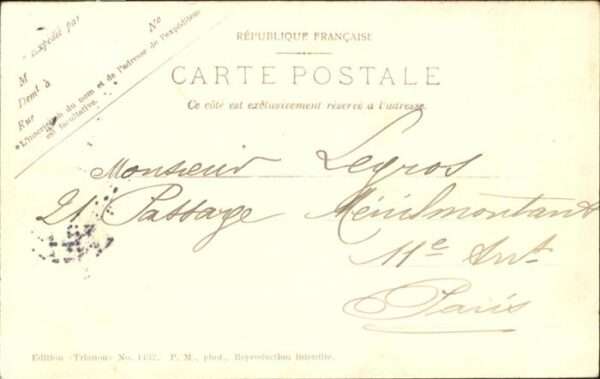 Expédié par
No
M
Demt à
Rue
*L'inscription du nom et de l'adresse de l'expéditeur
est facultative.
RÉPUBLIQUE FRANÇAISE
CARTE POSTALE
Ce côté est exclusivement réservé à l'adresse.
Monsieur Legros
21 Passage Ménilmontant
11e Art
Paris
Edition «Trianon» No. 1132. P. M., phot., Reproduction interdite.